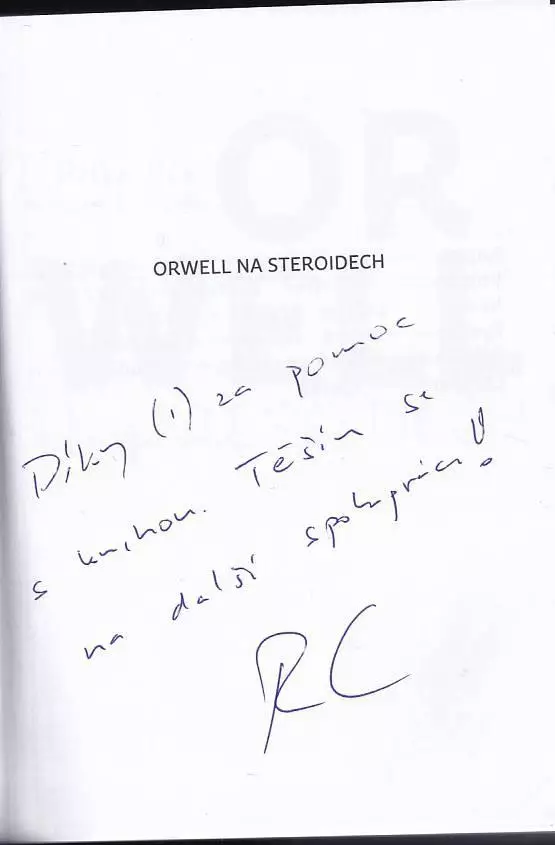 ORWELL NA STEROIDECH
Díky (!) za pomoc
s knihou. Těším se
na další spolupráci!
RC